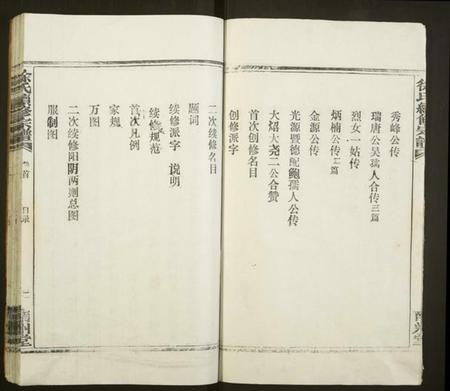 徐氏續修宗譜
秀峰公传
瑞唐公吴孺人合传三篇
烈女一姑传
炳楠公传二篇
金源公传
光源暨德配鲍孺人公传
大炤大尧二公合赞
首次创修名目
创修派字
南州堂
徐氏續修宗譜
二次续修名目
题词
续修派字 说明
续修规范
首次凡例
家规
万图
二次续修阳阴两测总图
服制图
卷首 目录
南州堂